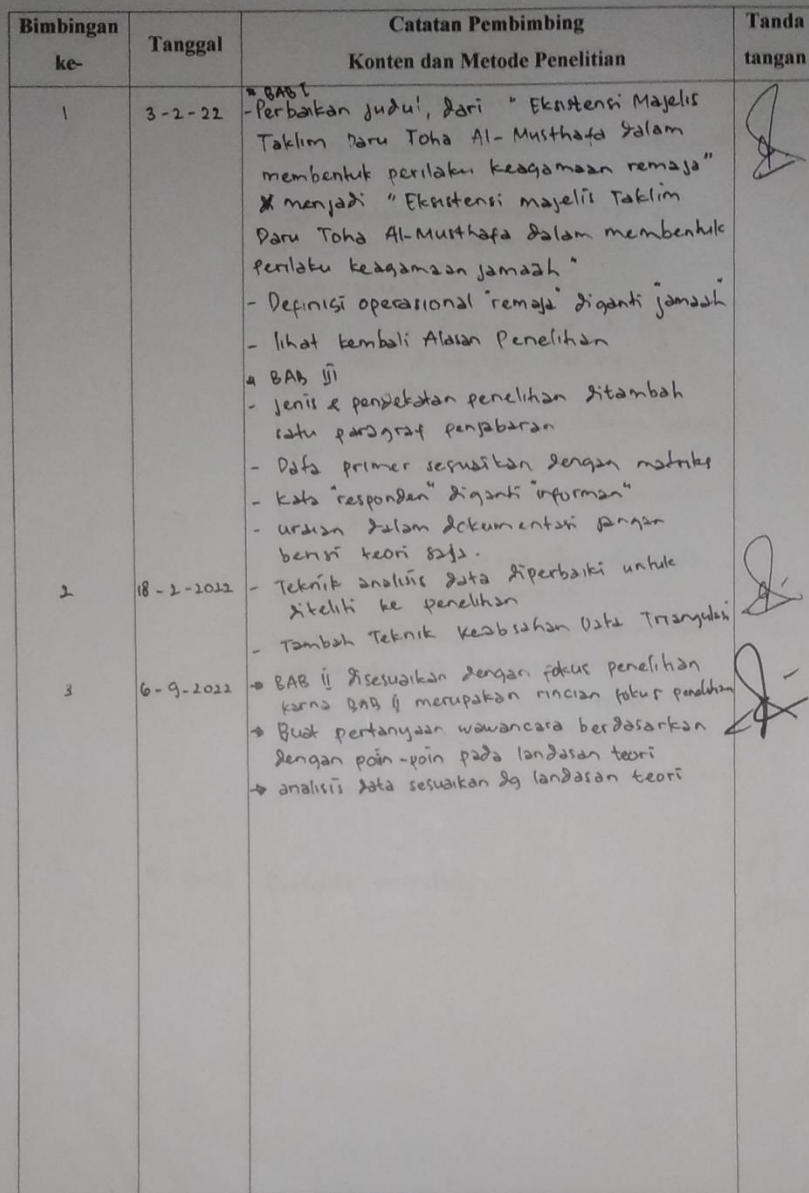 Bimbingan ke-
Tanggal
Catatan Pembimbing
Konten dan Metode Penelitian
Tanda tangan
* BAB I
1
3-2-22
-Perbaikan judul, dari "Eksistensi Majelis
Taklim Daru Toha Al-Musthafa dalam
membentuk perilaku keagamaan remaja"
menjadi "Eksistensi majelis Taklim
Daru Toha Al-Musthafa dalam membentuk
perilaku keagamaan jamaah"
- Definisi operasional "remaja" diganti "jamaah"
- lihat kembali Alasan Penelitian
BAB iii
- jenis & pendekatan penelitian ditambah
satu paragraf penjabaran
- Data primer sesuaikan dengan matriks
- kata "responden" diganti "informan"
- uraian dalam dokumentasi jangan
berisi teori saja.
2
18-2-2022
- Teknik analisis data diperbaiki untuk
diteliti ke penelitian
- Tambah Teknik Keabsahan Data Triangulasi
3
6-9-2022
→ BAB ii disesuaikan dengan fokus penelitian
karna BAB ii merupakan rincian fokus penelitian
→ Buat pertanyaan wawancara berdasarkan
dengan poin-poin pada landasan teori
→ analisis data sesuaikan dg landasan teori